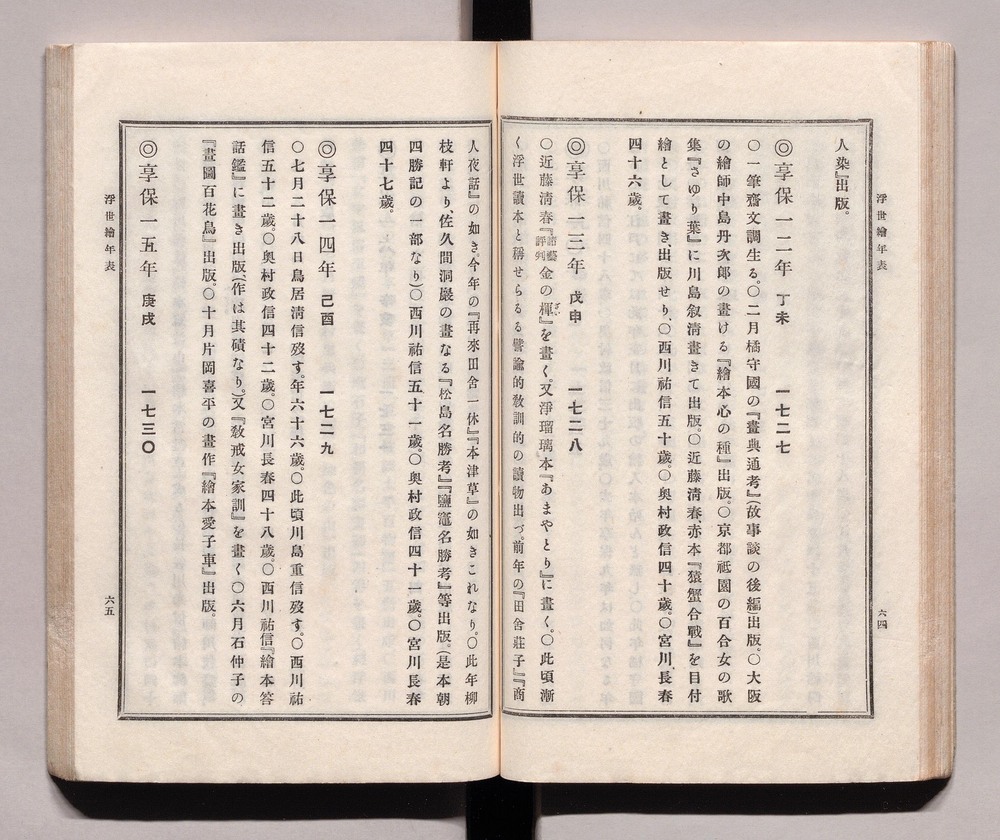 浮世繪年表
六四
人染』出版。
◎享保一二年 丁未 一七二七
〇一筆齋文調生る。〇二月橘守國の『畫典通考』(故事談の後編)出版。〇大阪
の繪師中島丹次郎の畫ける『繪本心の種』出版。〇京都祗園の百合女の歌
集『さゆり葉』に川島叙淸畫きて出版。〇近藤淸春、赤本『猿蟹合戰』を目付
繪として畫き、出版せり、〇西川祐信五十歲。〇奥村政信四十歲。〇宮川長春
四十六歲。
◎享保一三年 戊申 一七二八
〇近藤淸春『諸藝評判金の揮』を畫く。又淨瑠璃本『あまやとり』に畫く。〇此頃漸
く浮世讀本と稱せらるる譬諭的敎訓的の讀物出づ。前年の『田舍莊子』『商
人夜話』の如き、今年の『再來田舍一休』『本津草』の如きこれなり。〇此年柳
枝軒より、佐久間洞巖の畫なる『松島名勝考』『鹽竈名勝考』等出版。(是本朝
四勝記の一部なり)〇西川祐信五十一歲。〇奥村政信四十一歲。〇宮川長春
四十七歲。
◎享保一四年 己酉 一七二九
〇七月二十八日鳥居淸信歿す。年六十六歲。〇此頃川島重信歿す。〇西川祐
信五十二歲。〇奥村政信四十二歲。〇宮川長春四十八歲。〇西川祐信『繪本答
話鑑』に畫き出版、(作は其磧なり。)又『敎戒女家訓』を畫く〇六月石仲子の
『畫圖百花鳥』出版。〇十月片岡喜平の畫作『繪本愛子車』出版。
◎享保一五年 庚戌 一七三〇
浮世繪年表
六五